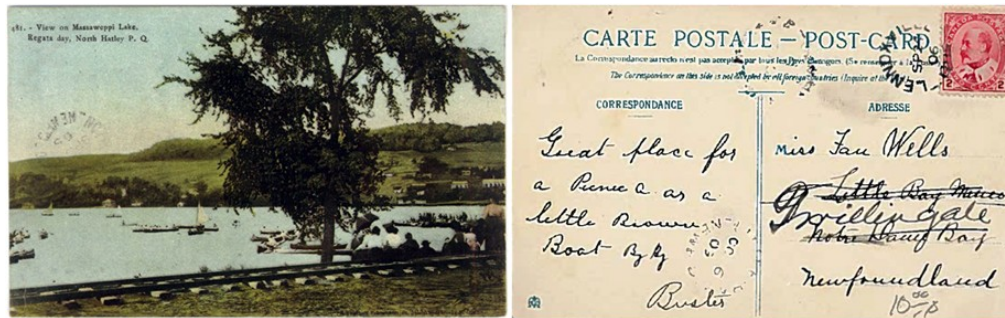 481. - View on Massawuppi Lake,
Regata day, North Hatley P. Q.
CARTE POSTALE – POST-CARD
La Correspondance au recto n'est pas acceptée par tous les pays étrangers. (Se renseigner à la
The Correspondence on this side is not accepted by all foreign countries (Inquire at the
CORRESPONDANCE
ADRESSE
Great place for
a Picnic a. as a
little Brown
Boat By By
Buster
Miss Fan Wells
Little Bay
Twillengate
Notre Dame Bay
Newfoundland
CANADA POSTAGE
2